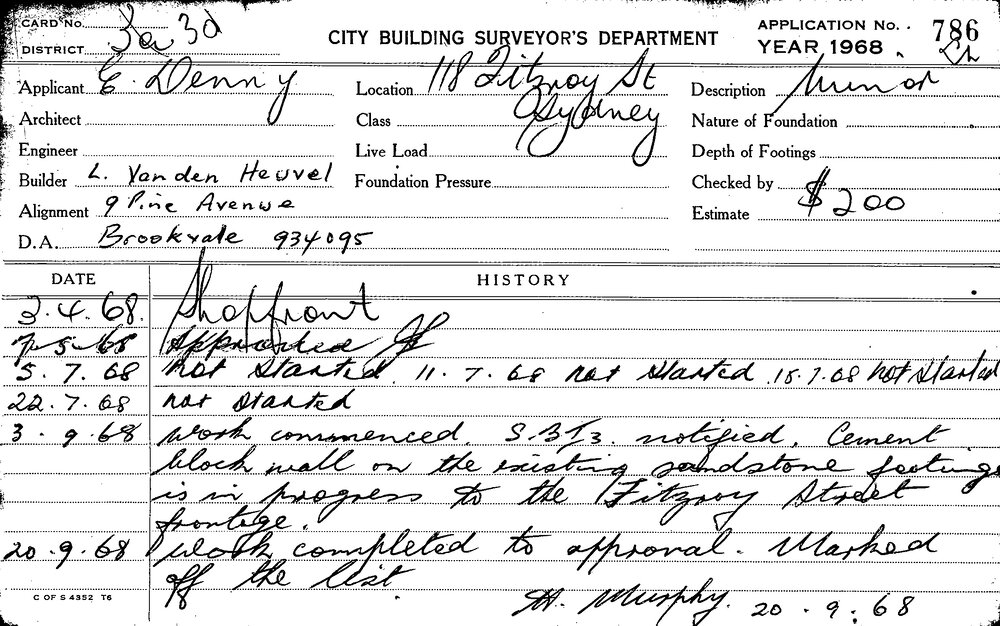 CARD No.
DISTRICT 3d
CITY BUILDING SURVEYOR'S DEPARTMENT
APPLICATION No. 786
YEAR 1968
Applicant E. Denny
Location 118 Fitzroy St
Description Minor
Architect
Class Sydney
Nature of Foundation
Engineer
Live Load
Depth of Footings
Builder L. Van den Heuvel
Foundation Pressure
Checked by
Alignment 9 Pine Avenue
Estimate $200
D.A. Brookvale 934095
DATE HISTORY
3.4.68. Shopfront
7-5-68 Approved
5.7.68 not started 11.7.68 not started 15.7.68 not started
22.7.68 not started
3.9.68 work commenced. S.B.I.3. notified. Cement
block wall on the existing sandstone footings
is in progress to the Fitzroy Street
frontage.
20.9.68 Work completed to approval. Marked
off the list
H. Murphy. 20.9.68
C OF S 4352 T6